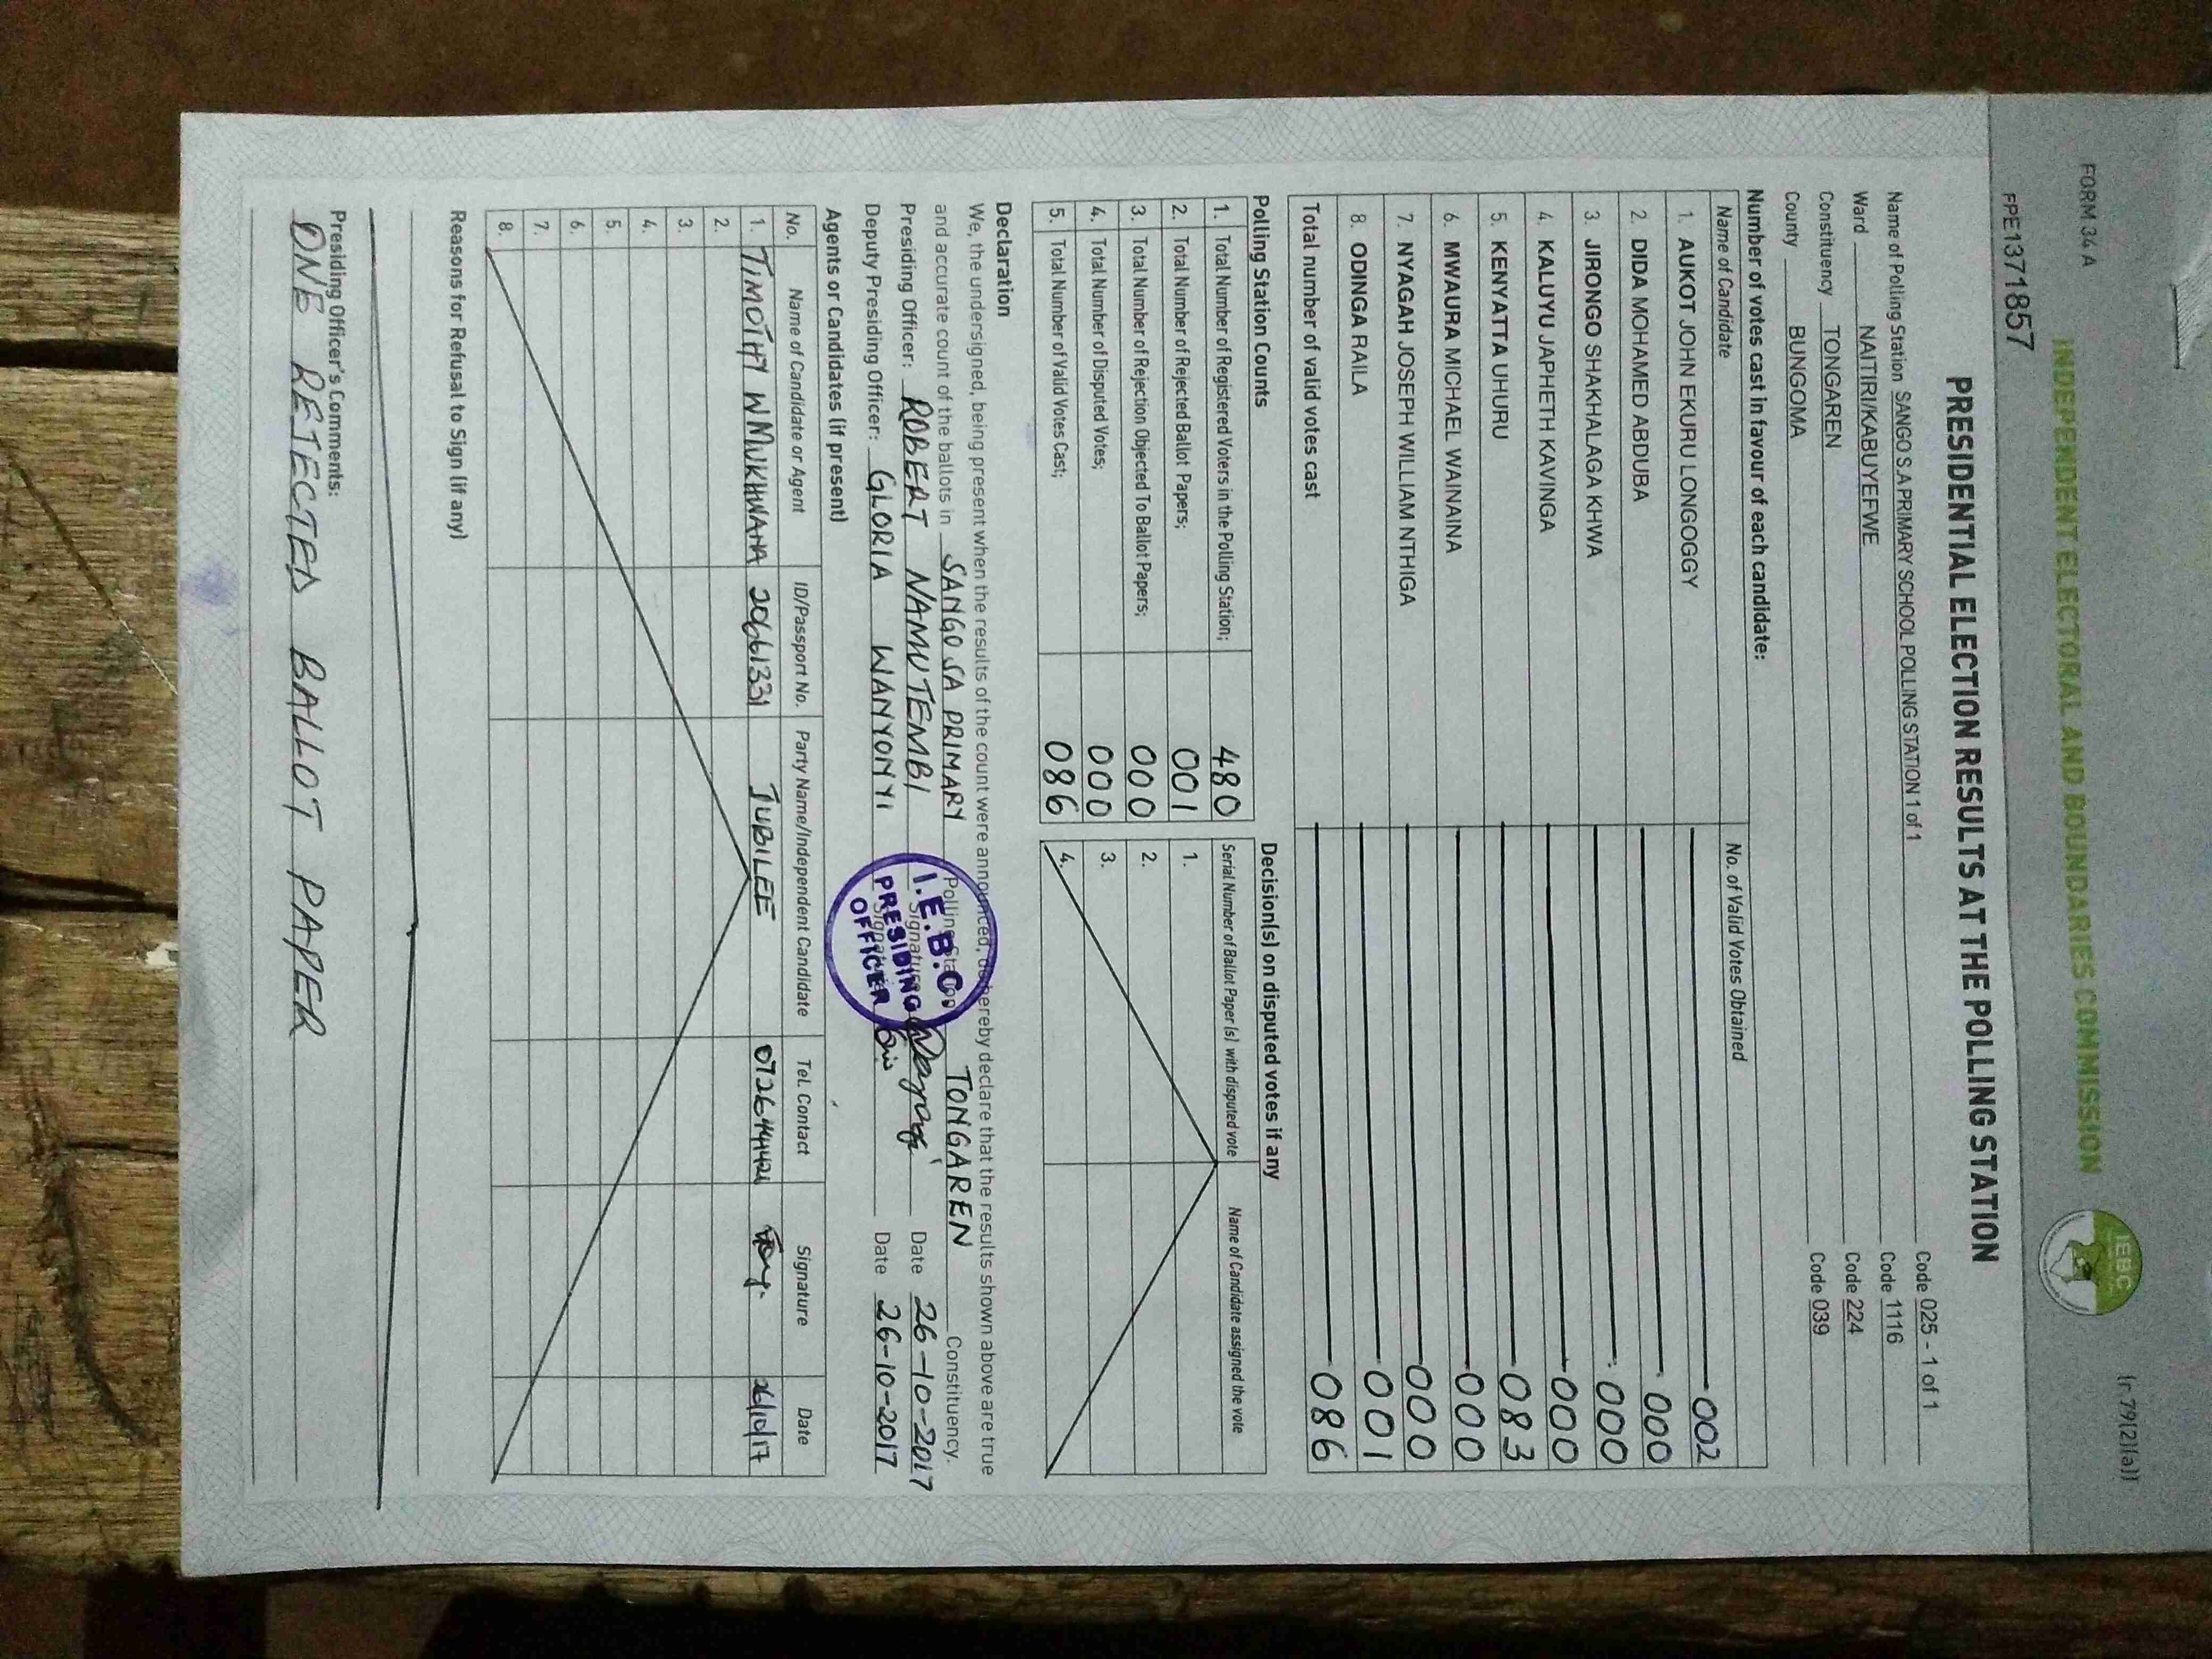 FORM 34 A
(r 79(2)(a))
INDEPENDENT ELECTORAL AND BOUNDARIES COMMISSION
IEBC
FPE1371857
PRESIDENTIAL ELECTION RESULTS AT THE POLLING STATION
Name of Polling Station SANGO S.A PRIMARY SCHOOL POLLING STATION 1 of 1 Code 025 - 1 of 1
Ward NAITIRI/KABUYEFWE Code 1116
Constituency TONGAREN Code 224
County BUNGOMA Code 039
Number of votes cast in favour of each candidate:
Name of Candidate No. of Valid Votes Obtained
1. AUKOT JOHN EKURU LONGOGGY 002
2. DIDA MOHAMED ABDUBA 000
3. JIRONGO SHAKHALAGA KHWA 000
4. KALUYU JAPHETH KAVINGA 000
5. KENYATTA UHURU 083
6. MWAURA MICHAEL WAINAINA 000
7. NYAGAH JOSEPH WILLIAM NTHIGA 000
8. ODINGA RAILA 001
Total number of valid votes cast 086
Polling Station Counts
1. Total Number of Registered Voters in the Polling Station; 480
2. Total Number of Rejected Ballot Papers; 001
3. Total Number of Rejection Objected To Ballot Papers; 000
4. Total Number of Disputed Votes; 000
5. Total Number of Valid Votes Cast; 086
Decision(s) on disputed votes if any
Serial Number of Ballot Paper (s) with disputed vote Name of Candidate assigned the vote
1.
2.
3.
4.
Declaration
We, the undersigned, being present when the results of the count were announced, do hereby declare that the results shown above are true
and accurate count of the ballots in SANGO SA PRIMARY Polling Station TONGAREN Constituency.
Presiding Officer: ROBERT NAMUTEMBI Signature Date 26-10-2017
Deputy Presiding Officer: GLORIA WANYONYI Signature Date 26-10-2017
I.E.B.C.
PRESIDING
OFFICER
Agents or Candidates (if present)
No. Name of Candidate or Agent ID/Passport No. Party Name/Independent Candidate Tel. Contact Signature Date
1. TIMOTHY W MUKHWANA 20661331 JUBILEE 26/10/17
2.
3.
4.
5.
6.
7.
8.
Reasons for Refusal to Sign (if any)
Presiding Officer's Comments:
ONE REJECTED BALLOT PAPER